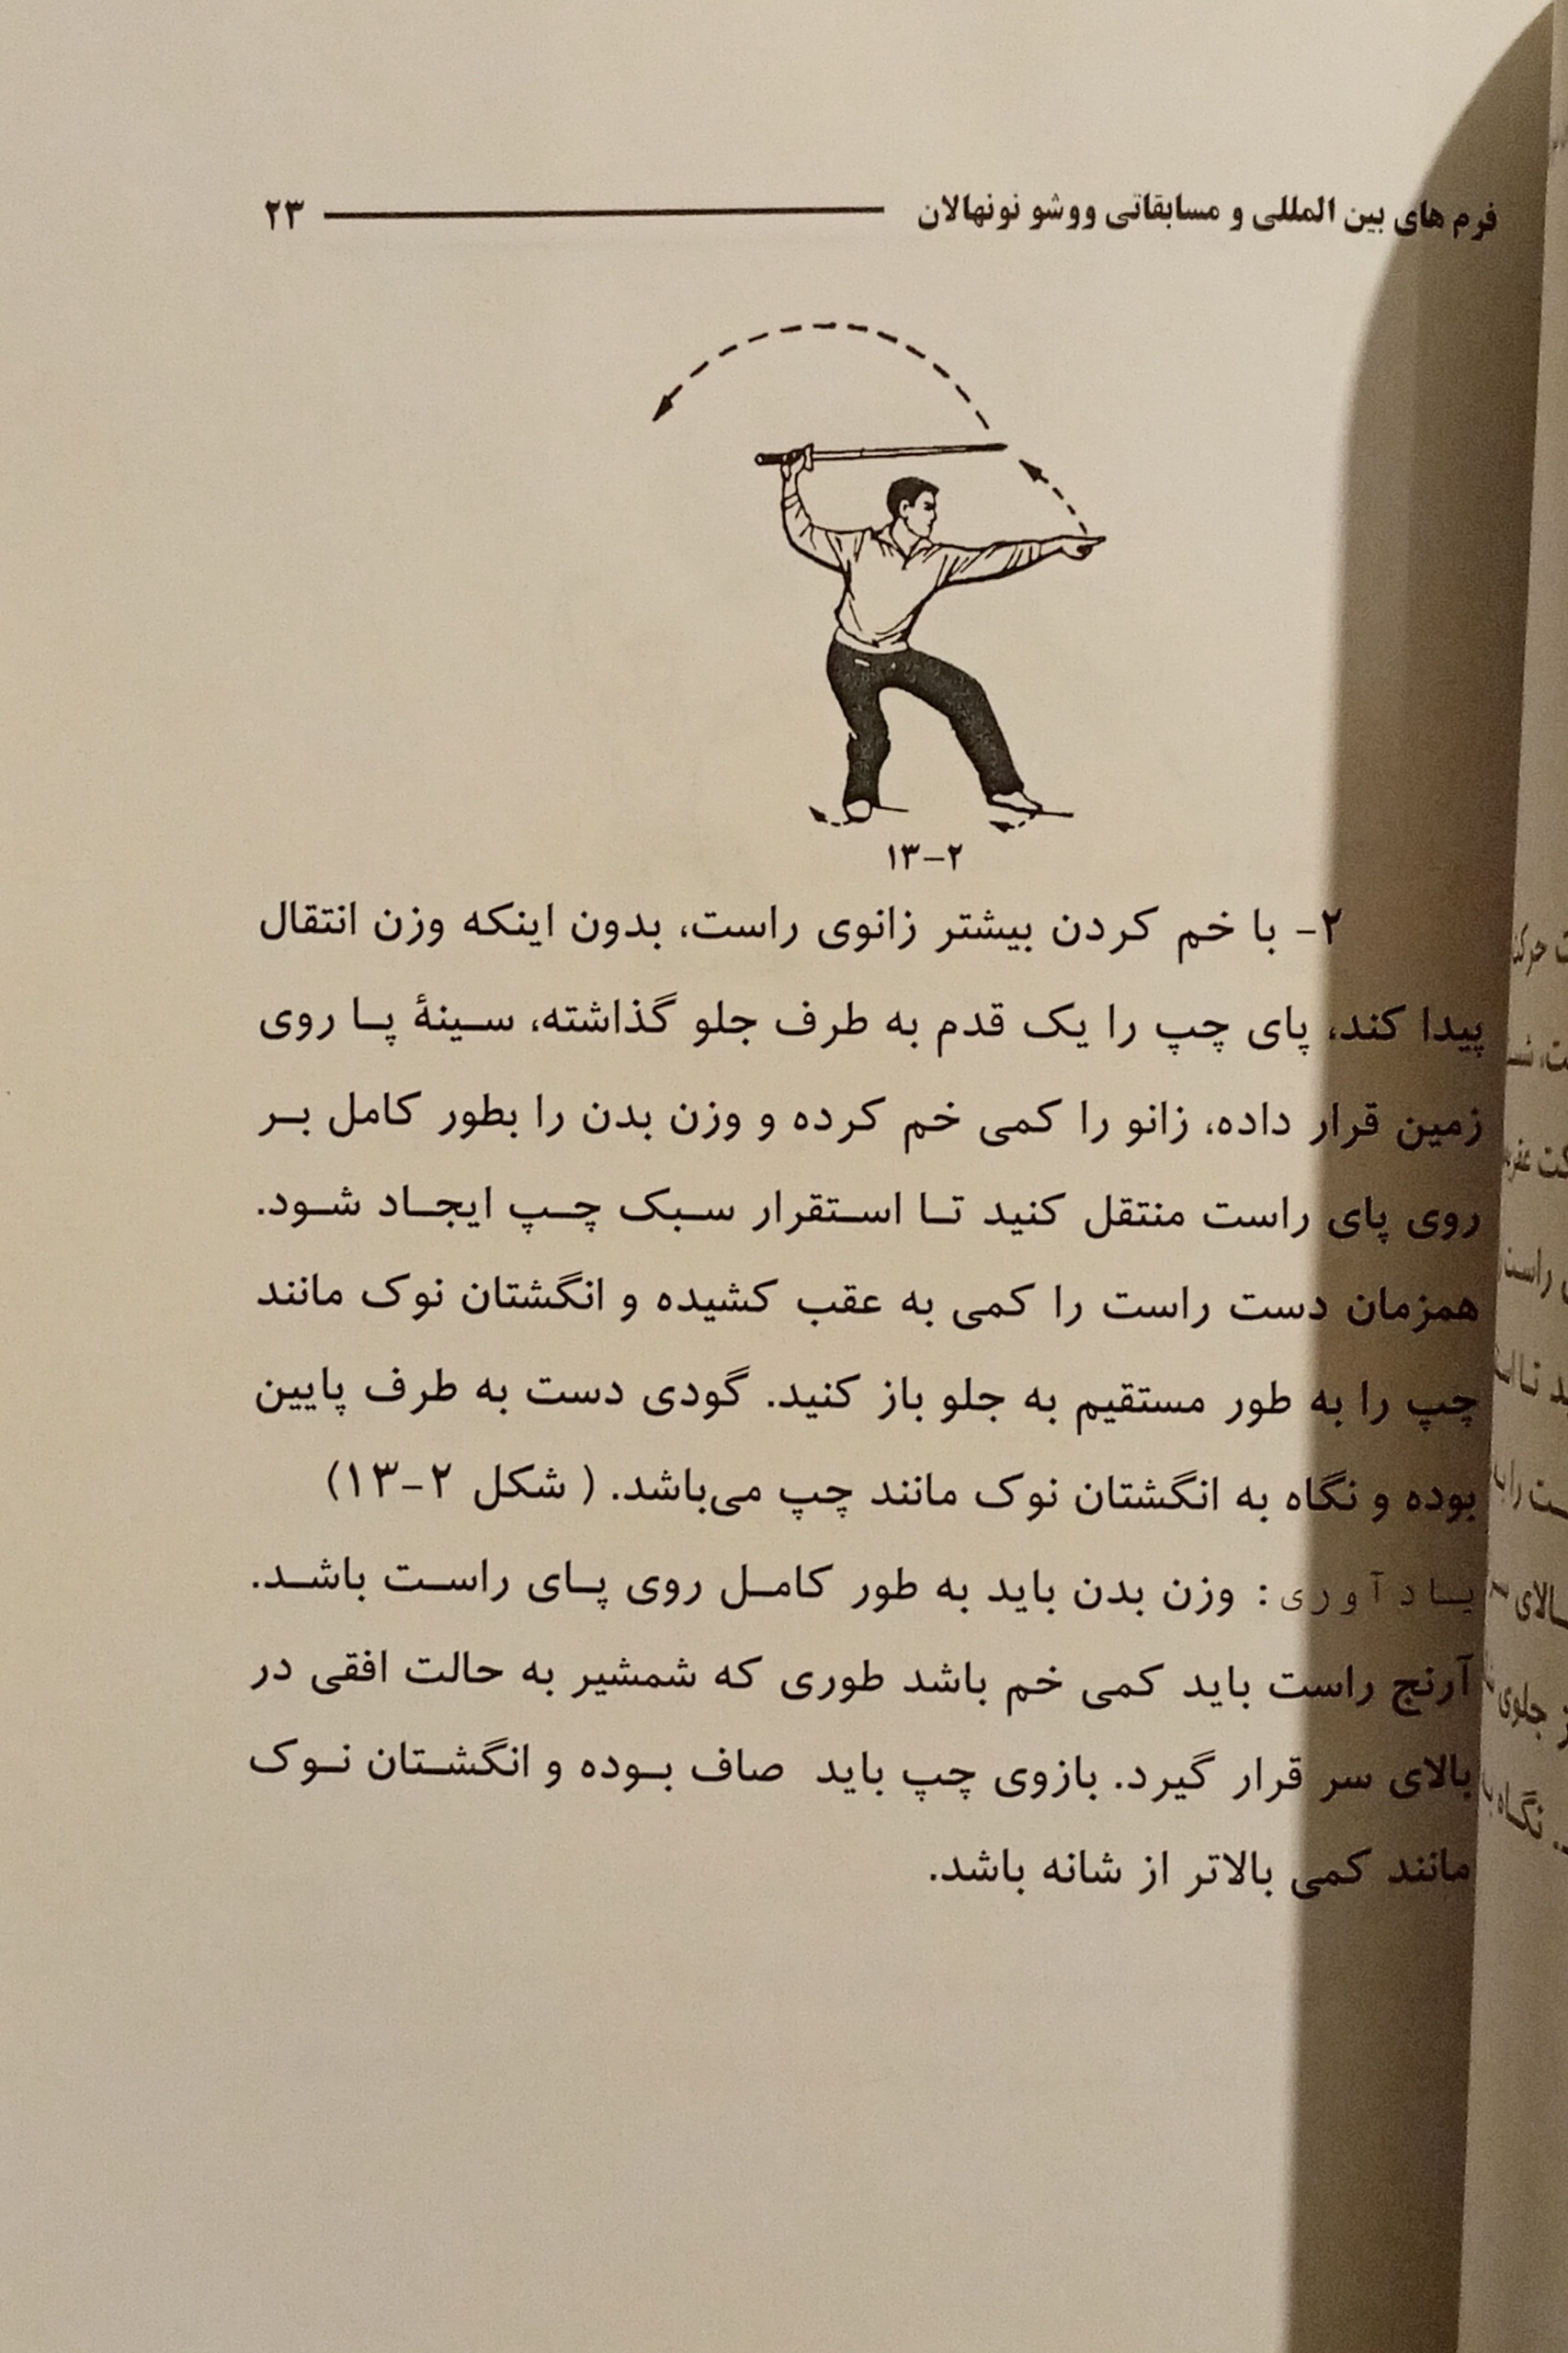 فرم های بین المللی و مسابقاتی ووشو نونهالان ۲۳
۱۳-۲
۲- با خم کردن بیشتر زانوی راست، بدون اینکه وزن انتقال
پیدا کند، پای چپ را یک قدم به طرف جلو گذاشته، سینهٔ پا روی
زمین قرار داده، زانو را کمی خم کرده و وزن بدن را بطور کامل بر
روی پای راست منتقل کنید تا استقرار سبک چپ ایجاد شود.
همزمان دست راست را کمی به عقب کشیده و انگشتان نوک مانند
چپ را به طور مستقیم به جلو باز کنید. گودی دست به طرف پایین
بوده و نگاه به انگشتان نوک مانند چپ می‌باشد. ( شکل ۲-۱۳)
یادآوری: وزن بدن باید به طور کامل روی پای راست باشد.
آرنج راست باید کمی خم باشد طوری که شمشیر به حالت افقی در
بالای سر قرار گیرد. بازوی چپ باید صاف بوده و انگشتان نوک
مانند کمی بالاتر از شانه باشد.